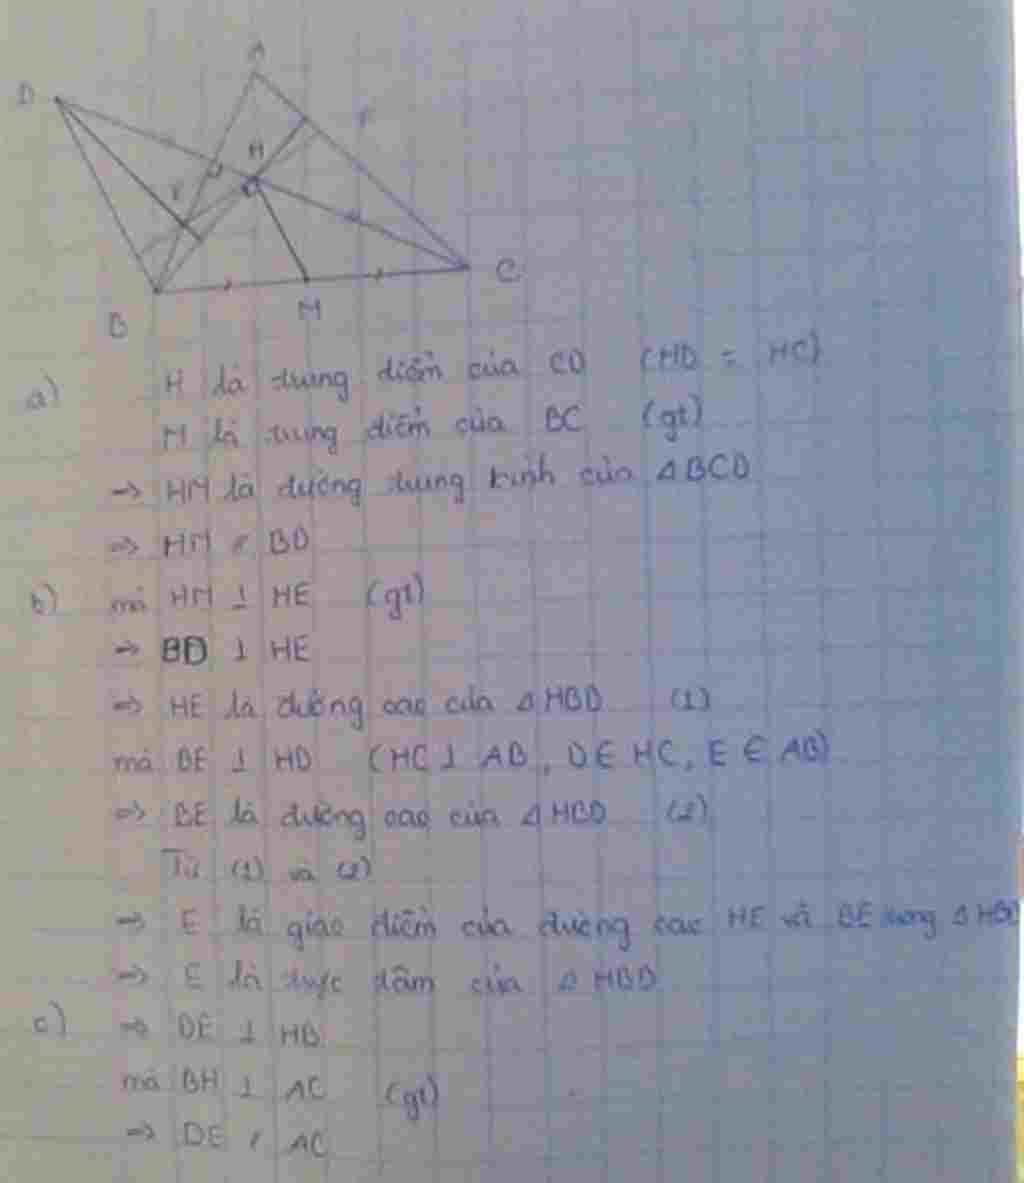 A
D
F
H
E
C
M
B
a) H là trung điểm của CD (HD = HC)
M là trung điểm của BC (gt)
=> HM là đường trung bình của ΔBCD
=> HM // BD
b) mà HM ⊥ HE (gt)
=> BD ⊥ HE
=> HE là đường cao của ΔHBD (1)
mà BE ⊥ HD (HC ⊥ AB, D ∈ HC, E ∈ AB)
=> BE là đường cao của ΔHBD (2)
Từ (1) và (2)
=> E là giao điểm của đường cao HE và BE trong ΔHBD
=> E là trực tâm của ΔHBD
c) => DE ⊥ HB
mà BH ⊥ AC (gt)
=> DE // AC